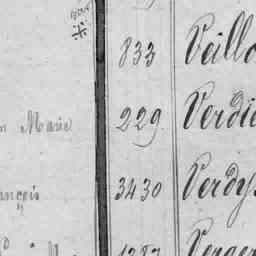 833 Veillo
n Marie 229 Verdie
ançois 3430 Verdy
1287 Verger